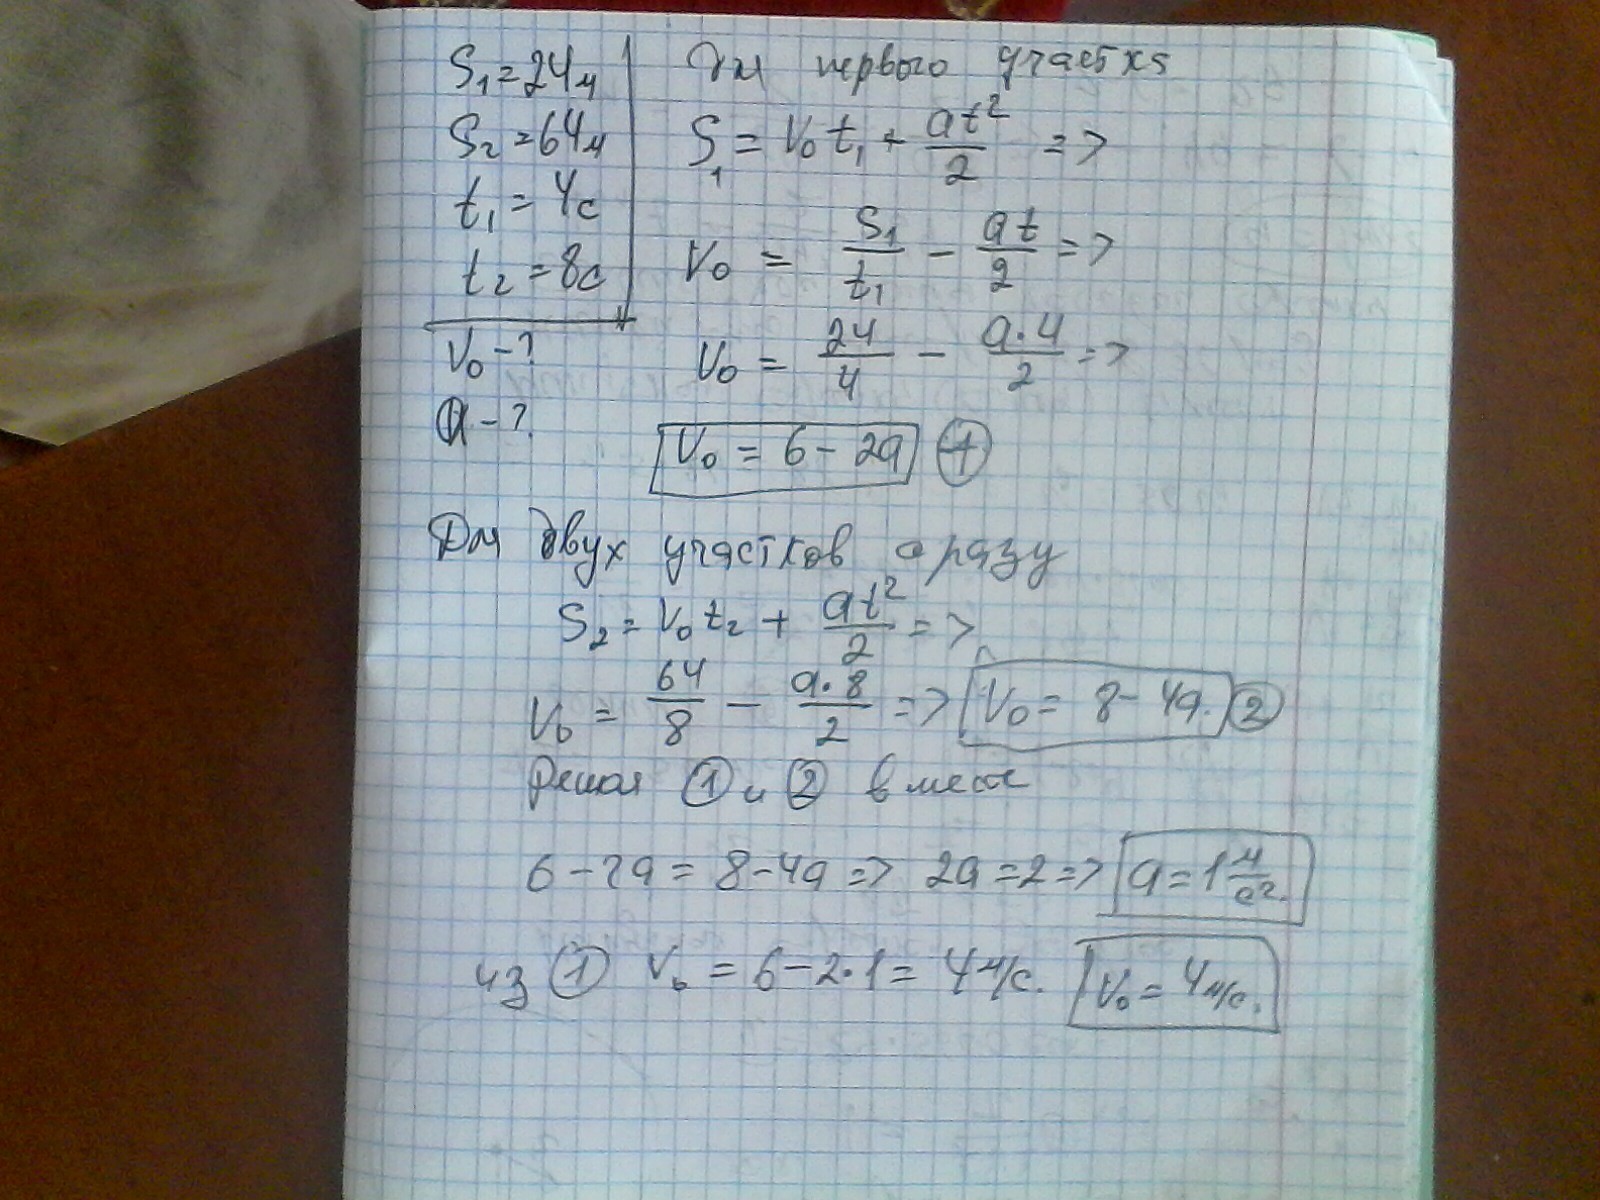 S₁ = 24 м
S₂ = 64 м
t₁ = 4с
t₂ = 8с
V₀ - ?
a - ?
Для первого участка
S₁ = V₀t₁ + at²/2 =>
V₀ = S₁/t₁ - at/2 =>
V₀ = 24/4 - a·4/2 =>
V₀ = 6 - 2a ①
Для двух участков сразу
S₂ = V₀t₂ + at²/2 =>
V₀ = 64/8 - a·8/2 => V₀ = 8 - 4a. ②
Решая ① и ② вместе
6 - 2a = 8 - 4a => 2a = 2 => a = 1 м/с².
из ① V₀ = 6 - 2·1 = 4 м/с. V₀ = 4 м/с.